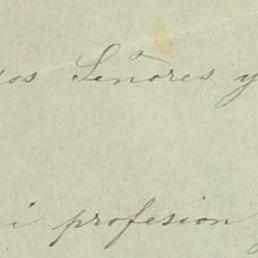 os Señores y
i profesion